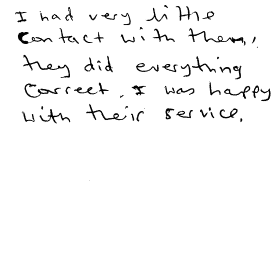 I had very little
contact with them,
they did everything
correct. I was happy
with their service.